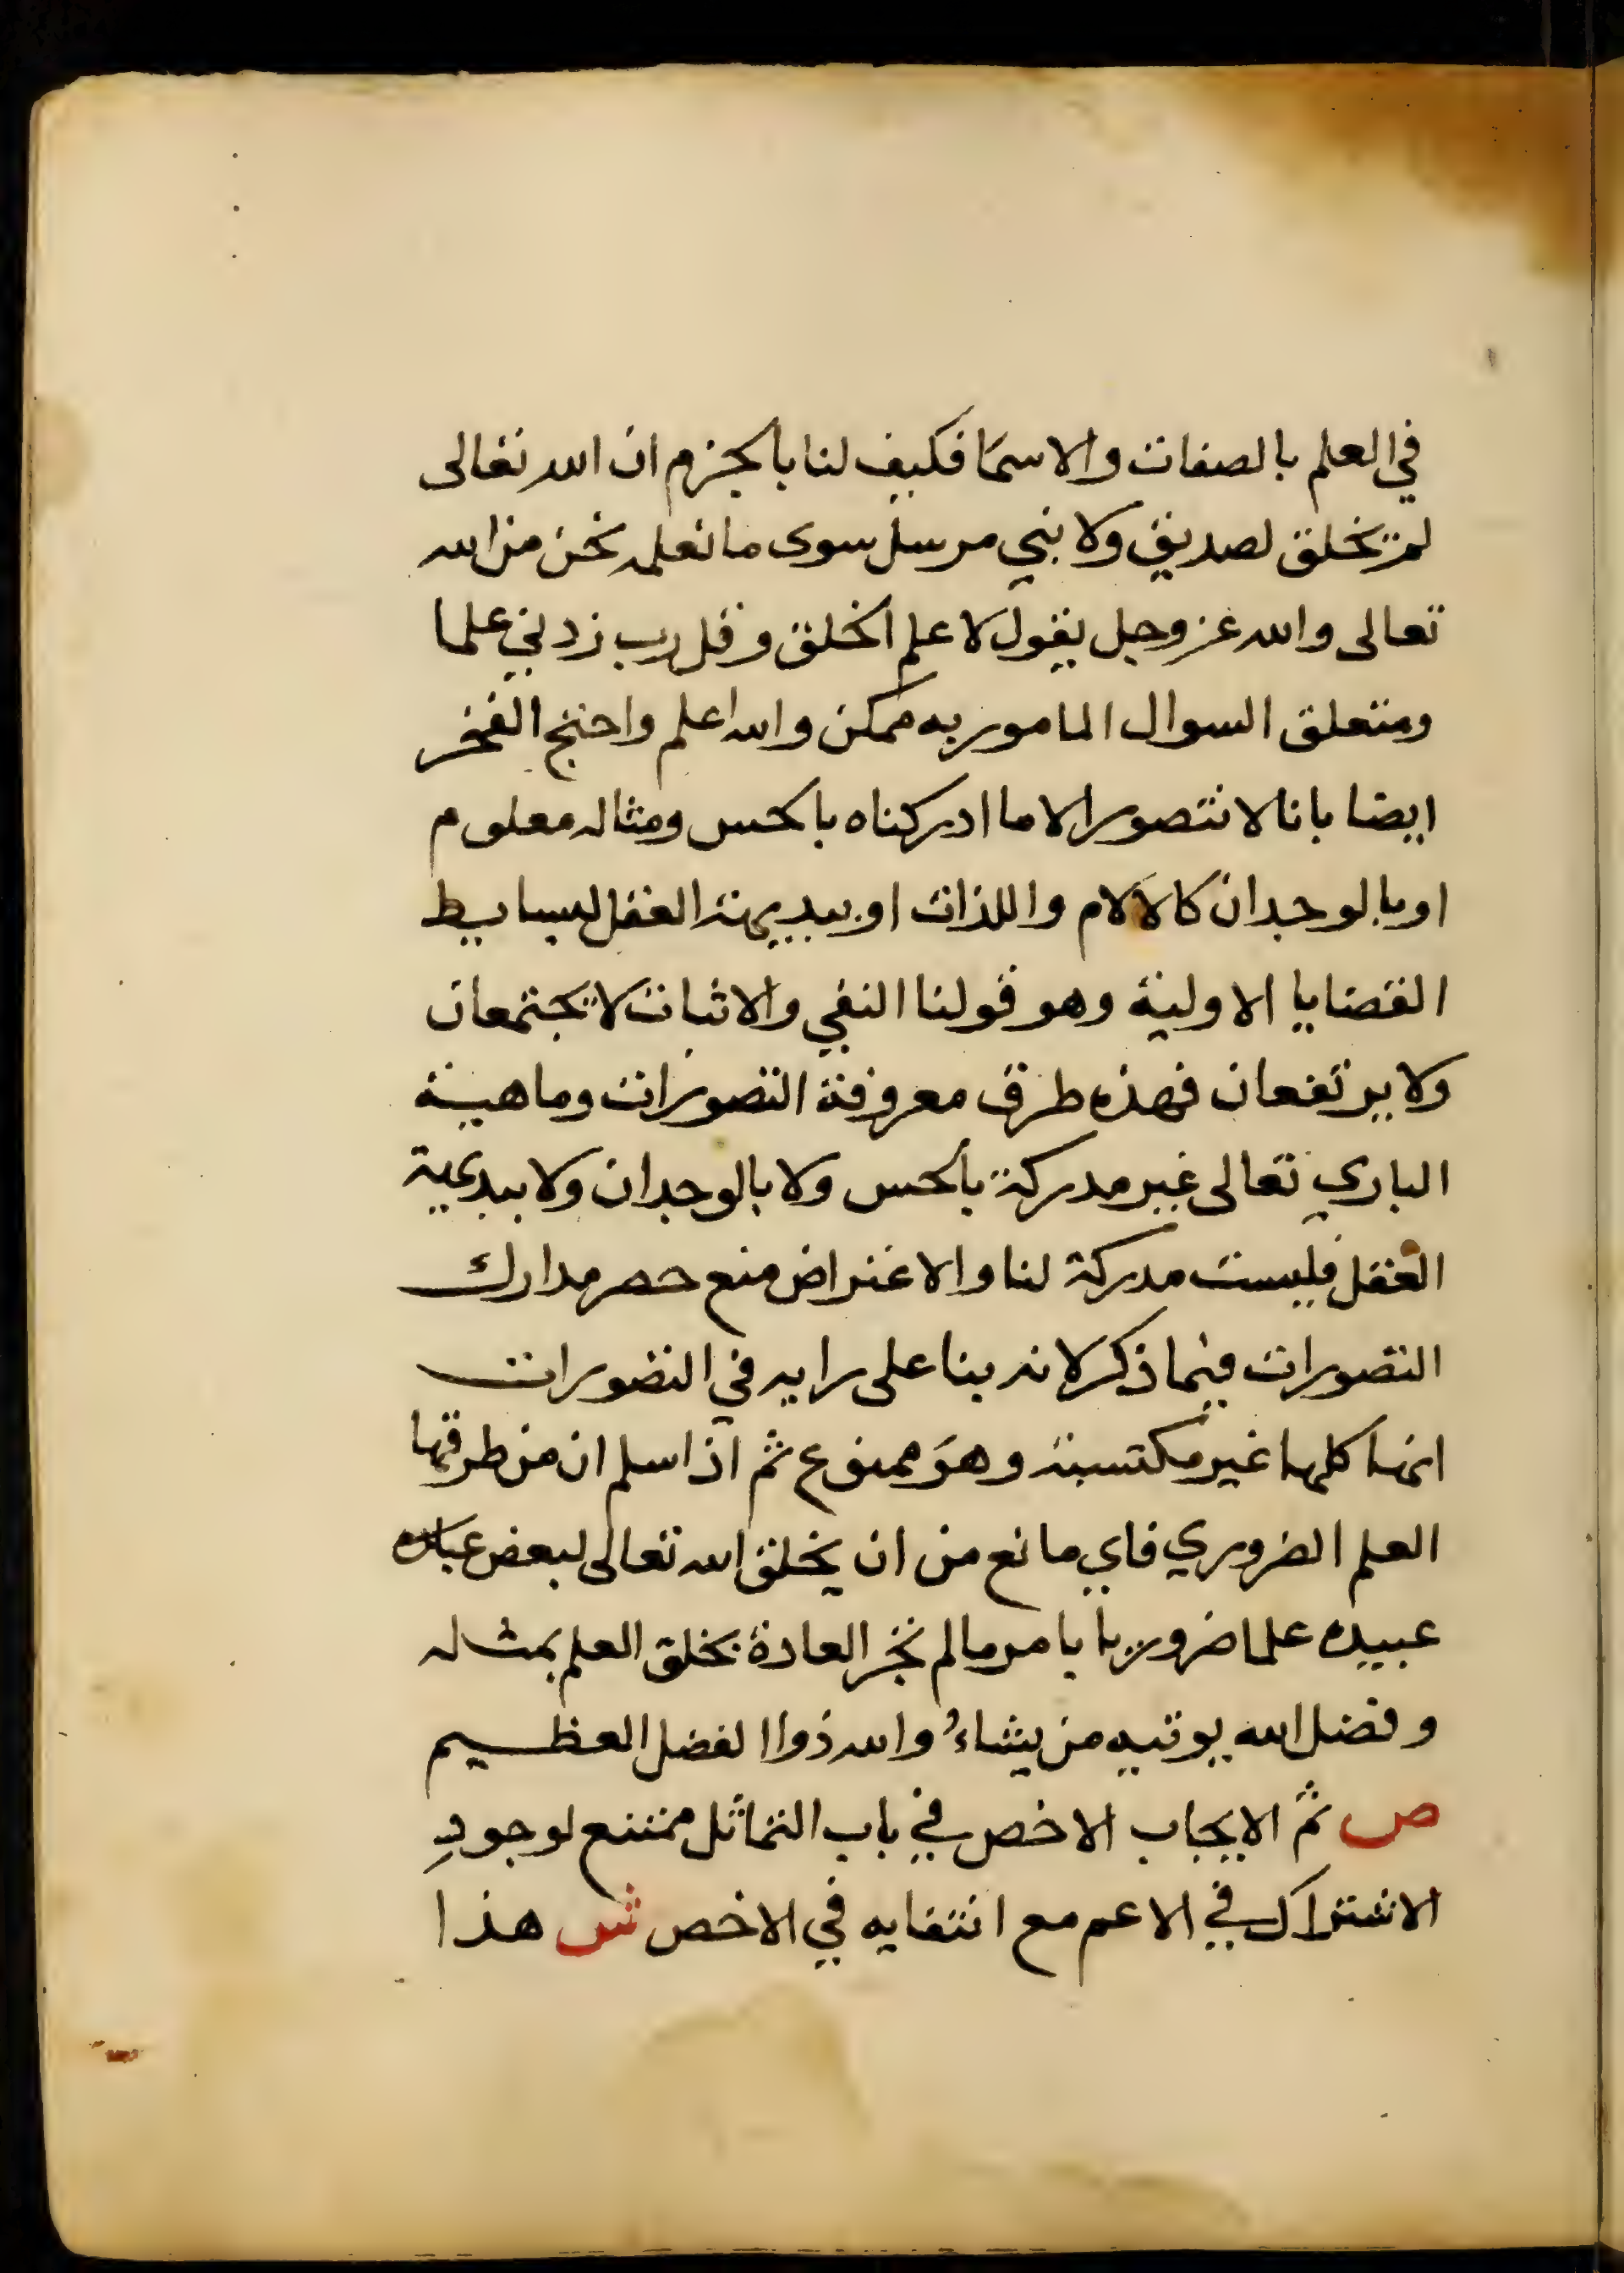 في العلم بالصفات والاسما فكيف لنا بالجزم ان الله تعالى
لم يخلق لصديق ولا نبي مرسل سوى ما نعلمه نحن من الله
تعالى والله عز وجل يقول لاعلم الخلق وقل رب زدني علما
ومتعلق السوال المامور به ممكن والله اعلم واحتج الفخر
ايضا بانا لا نتصور الا ما ادركناه بالحس ومثاله معلوم
او بالوجدان كالالام واللذات او ببديهة العقل لبسايط
القضايا الاولية وهو قولنا النفي والاثبات لا يجتمعان
ولا يرتفعان فهذه طرق معروفة التصورات وماهية
الباري تعالى غير مدركة بالحس ولا بالوجدان ولا ببديهية
العقل فليست مدركة لنا والاعتراض منع حصر مدارك
التصورات فيما ذكر لانه بنا على رايه في التصورات
انها كلها غير مكتسبة وهو ممنوع ثم اذا سلم ان من طرقها
العلم الضروري فاي مانع من ان يخلق الله تعالى لبعض عباده
عبيده علما ضروريا بامر ما لم تجر العادة بخلق العلم بمثله
وفضل الله يوتيه من يشاء والله ذوا لفضل العظيم
ص ثم الايجاب الاخص في باب التماثل ممتنع لوجود
الاشتراك في الاعم مع انتفايه في الاخص ش هذا